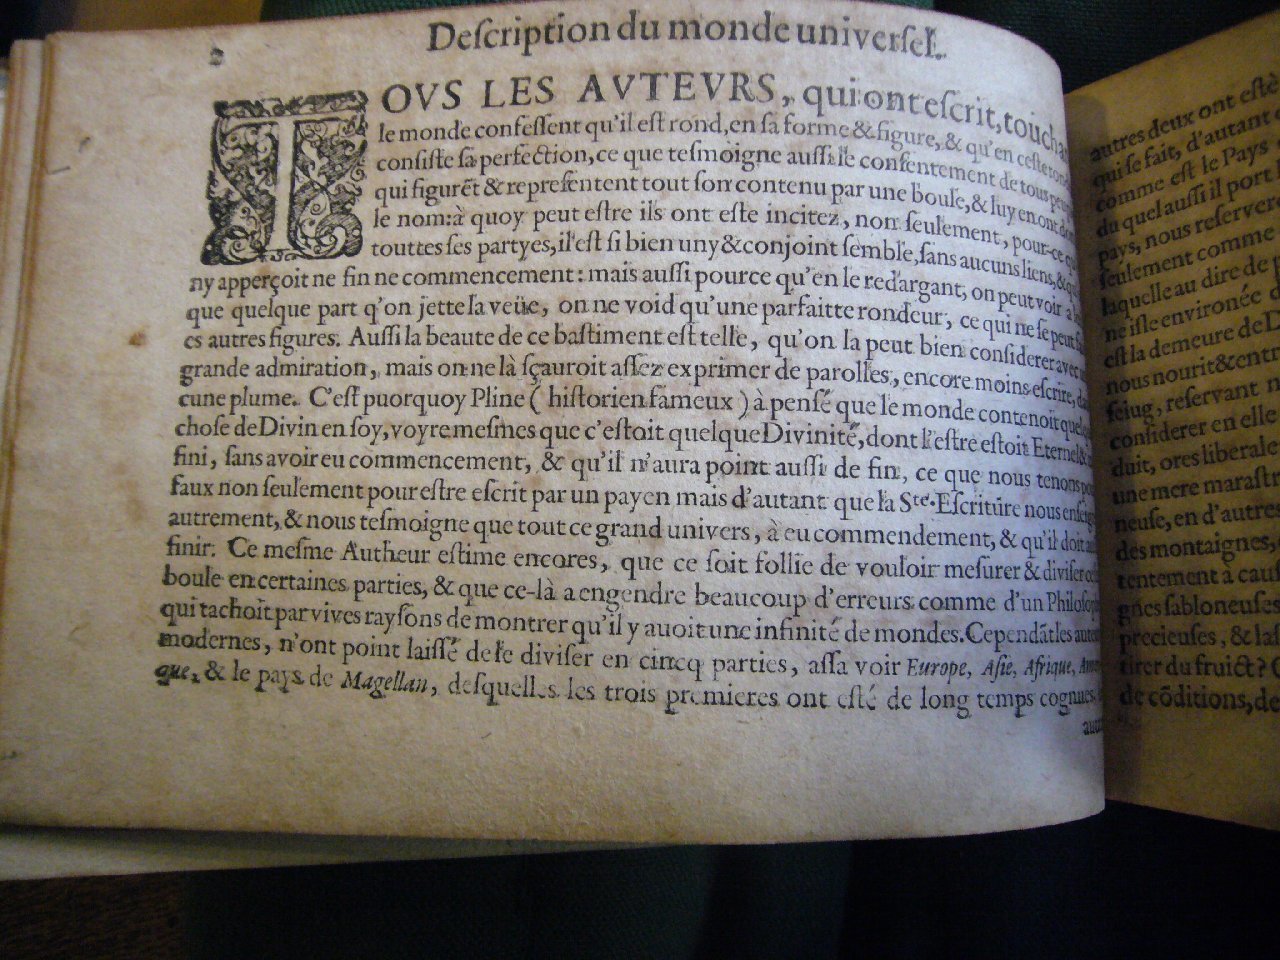 2
Description du monde universel.
TOVS LES AVTEVRS, qui ont escrit, touchant
le monde confessent qu'il est rond, en sa forme & figure, & qu'en ceste
consiste sa perfection, ce que tesmoigne aussi le consentement de tous
qui figurẽt & representent tout son contenu par une boule, & luy en ont
le nom: à quoy peut estre ils ont este incitez, non seulement, pour-ce
touttes ses partyes, il est si bien uny & conjoint semble, sans aucuns liens, &
ny apperçoit ne fin ne commencement: mais aussi pource qu'en le redargant, on peut voir a
que quelque part q'on jette la veüe, on ne void qu'une parfaitte rondeur, ce qui ne se peut
es autres figures. Aussi la beaute de ce bastiment est telle, qu'on la peut bien considerer avec
grande admiration, mais on ne là sçauroit assez exprimer de parolles, encore moins escrire,
cune plume. C'est puorquoy Pline ( historien fameux ) à pensé que le monde contenoit
chose de Divin en soy, voyre mesmes que c'estoit quelque Divinité, dont l'estre estoit Eternel &
fini, sans avoir eu commencement, & qu'il n'aura point aussi de fin, ce que nous tenons
faux non seulement pour estre escrit par un payen mais d'autant que la Ste. Escriture nous
autrement, & nous tesmoigne que tout ce grand univers, à eu commendement, & qu'il doit
finir. Ce mesme Autheur estime encores, que ce soit follie de vouloir mesurer & diviser
boule en certaines parties, & que ce-là a engendre beaucoup d'erreurs comme d'un
qui tachoit par vives raysons de montrer qu'il y avoit une infinité de mondes. Cependãt les
modernes, n'ont point laissé de le diviser en cincq parties, assa voir Europe, Asie, Afrique,
que, & le pays de Magellan, desquelles les trois premieres ont esté de long temps cognues,
autres deux ont estè
qui se fait, d'autant
comme est le Pays
du quel aussi il port
pays, nous reserver
seulement comme
laquelle au dire de
ne isle environée
est la demeure de
nous nourit & entr
reservant
considerer en elle
duit, ores liberale
une mere marastr
neuse, en d'autres
des montaignes,
tentement a cau
gnes sabloneuses
precieuses, & la
tirer du fruict?
de cõditions, de